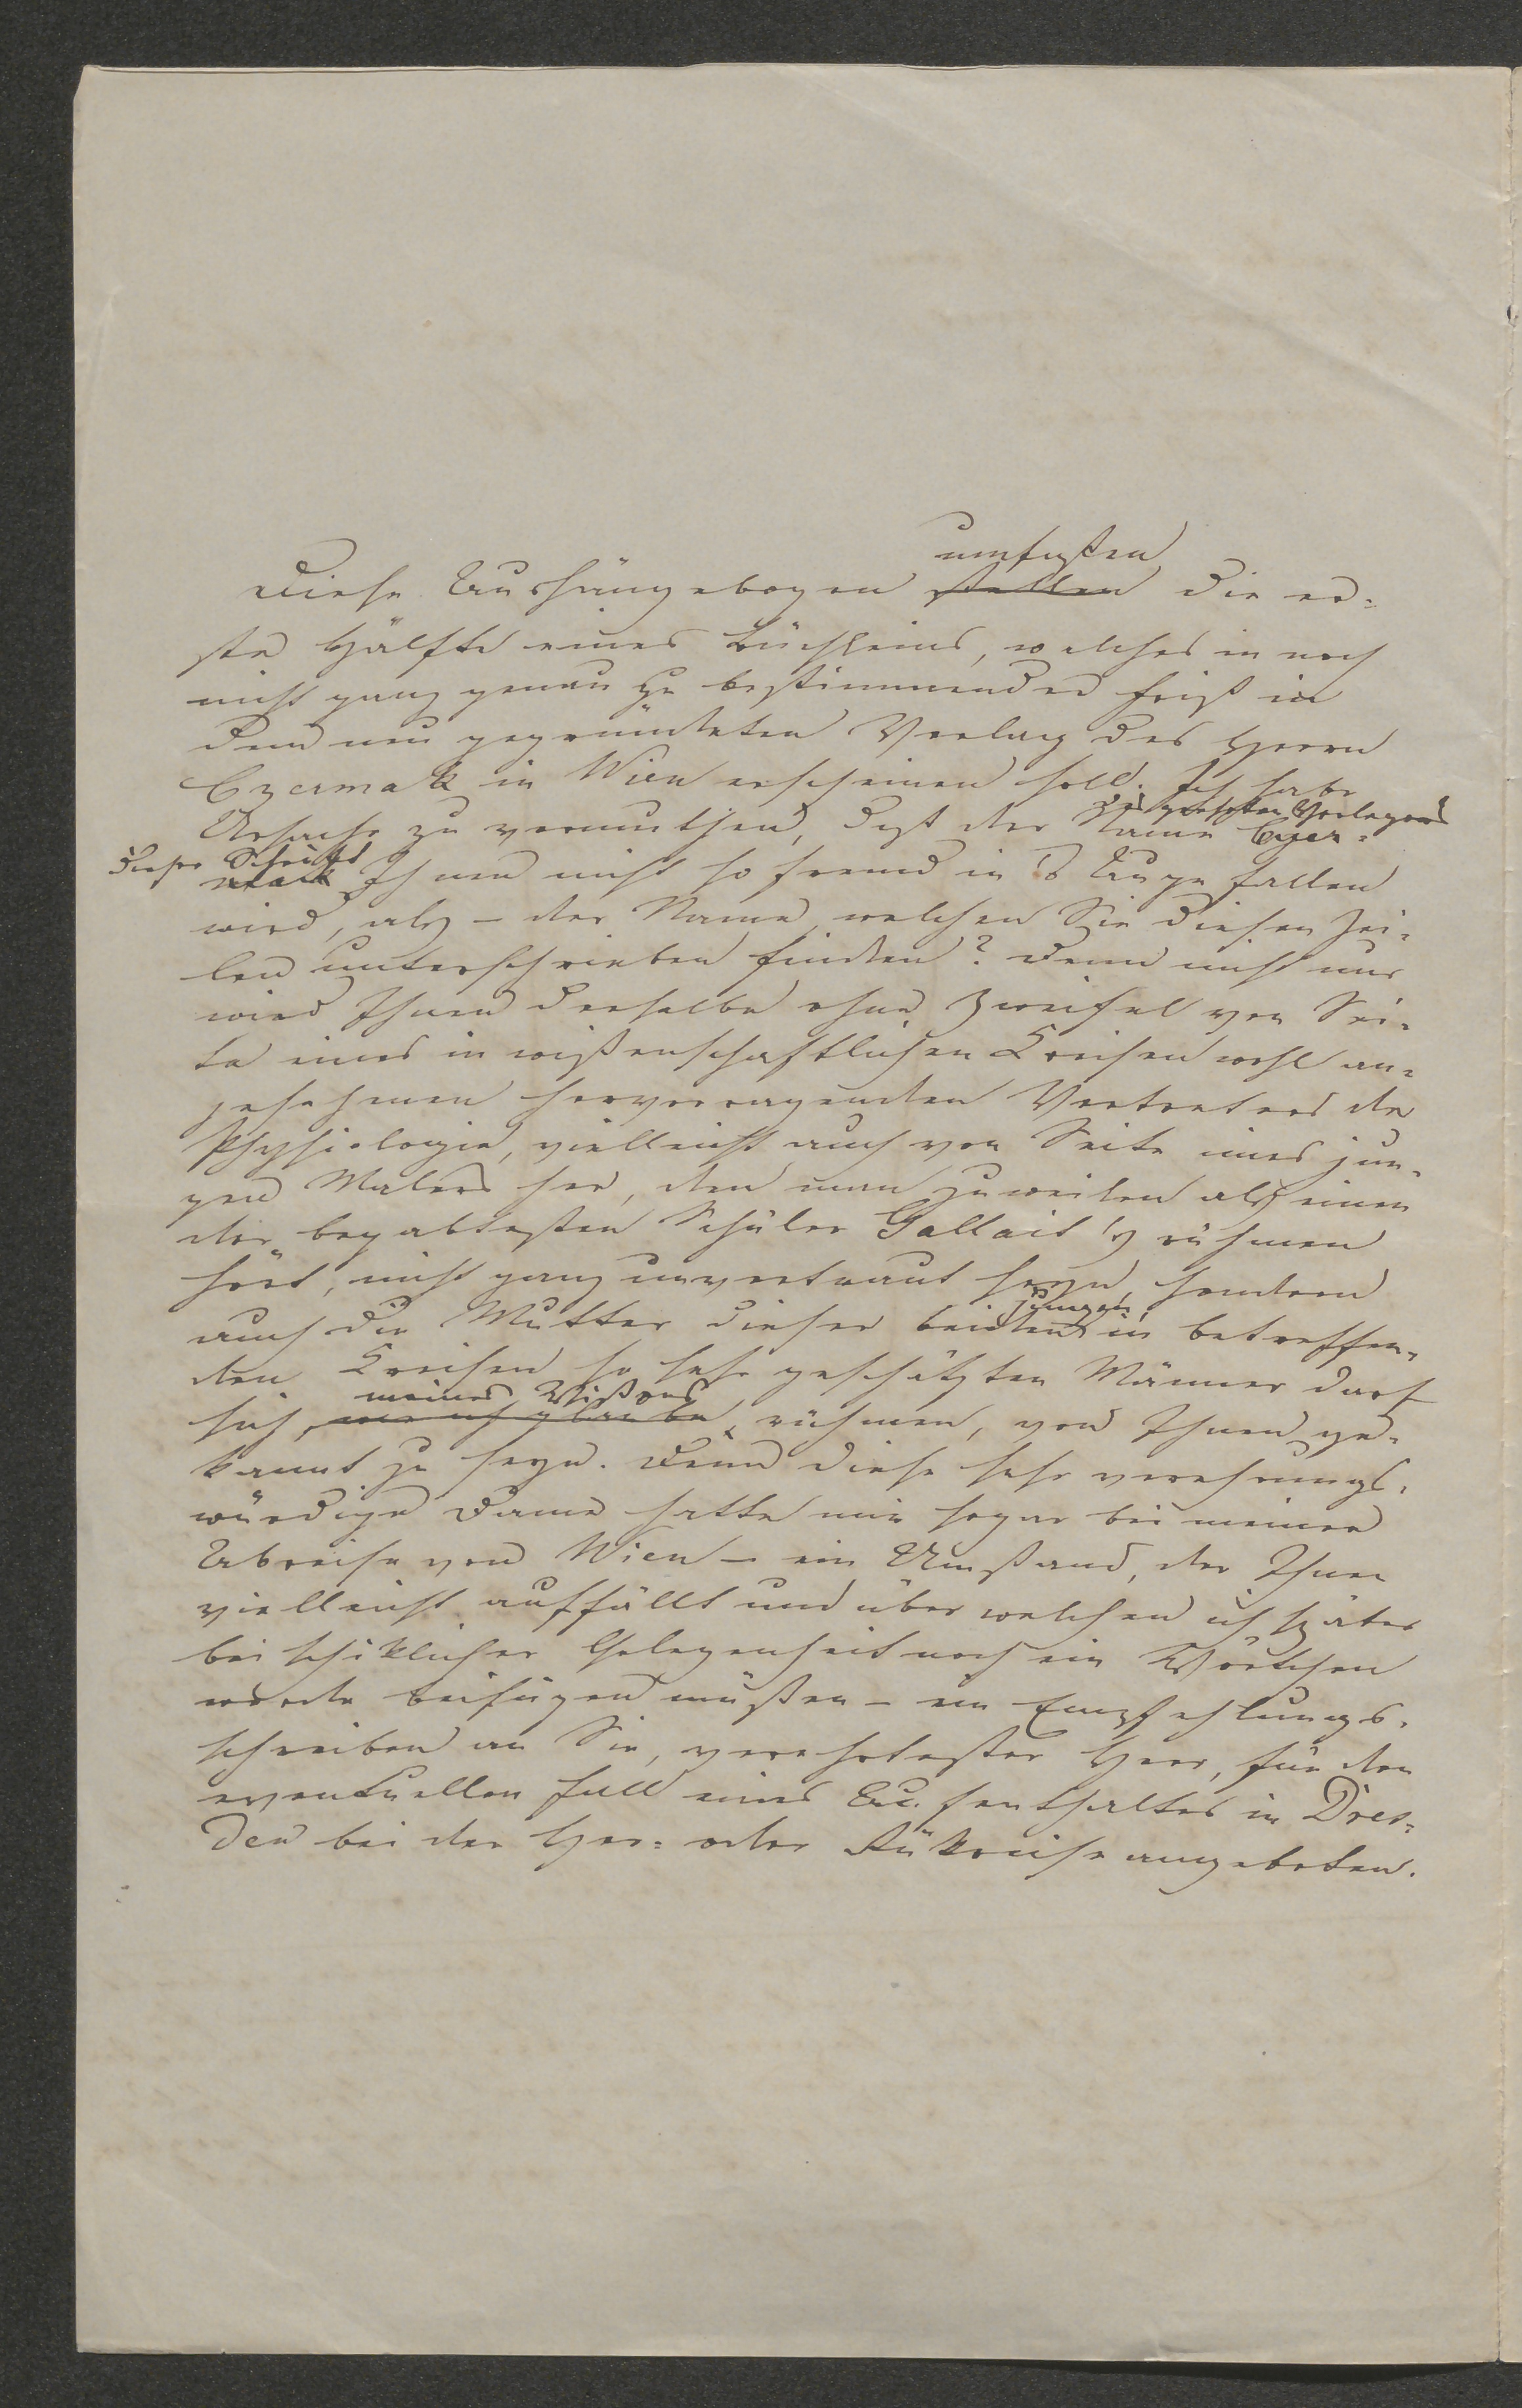 umfaßen
Diese Aushängebogen stellen die er-
ste Hälfte eines Büchleins, welches in noch
nicht ganz genau zu bestimmender Frist in
dem neu gegründeten Verlag des Herrn
Czermak in Wien erscheinen soll. Ich habe
des Verlegers
Ursache zu vermuthen, daß der Name Czer-
dieser Schrift
mack Ihnen nicht so fremd in's Auge fallen
wird, als – der Name, welchen Sie diesen Zei-
len unterschrieben finden? Denn nicht nur
wird Ihnen derselbe ohne Zweifel von Sei-
te eines in wißenschaftlichen Kreisen wohl an-
gesehenen hervorragenden Vertreters der
Physiologie, vielleicht auch von Seite eines jun-
gen Malers her, den man zuweilen als einen
der begabtesten Schüler Gallait's rühmen
hört, nicht ganz unvertraut seyn, sondern
jungen
auch die Mutter dieser beiden in betreffen-
den Kreisen so sehr geschätzten Männer darf
meines Wißens
sich, wie ich glaube, rühmen, von Ihnen ge-
kannt zu seyn. Denn diese sehr verehrungs-
würdige Dame hatte mir sogar bei meiner
Abreise von Wien – ein Umstand, der Ihnen
vielleicht auffällt und über welchen ich später
bei schiklicher Gelegenheit noch ein Wörtchen
werde beifügen müßen – ein Empfehlungs-
schreiben an Sie, verehrtester Herr, für den
eventuellen Fall eines Aufenthaltes in Dres-
den bei der Her- oder Rükreise angeboten.